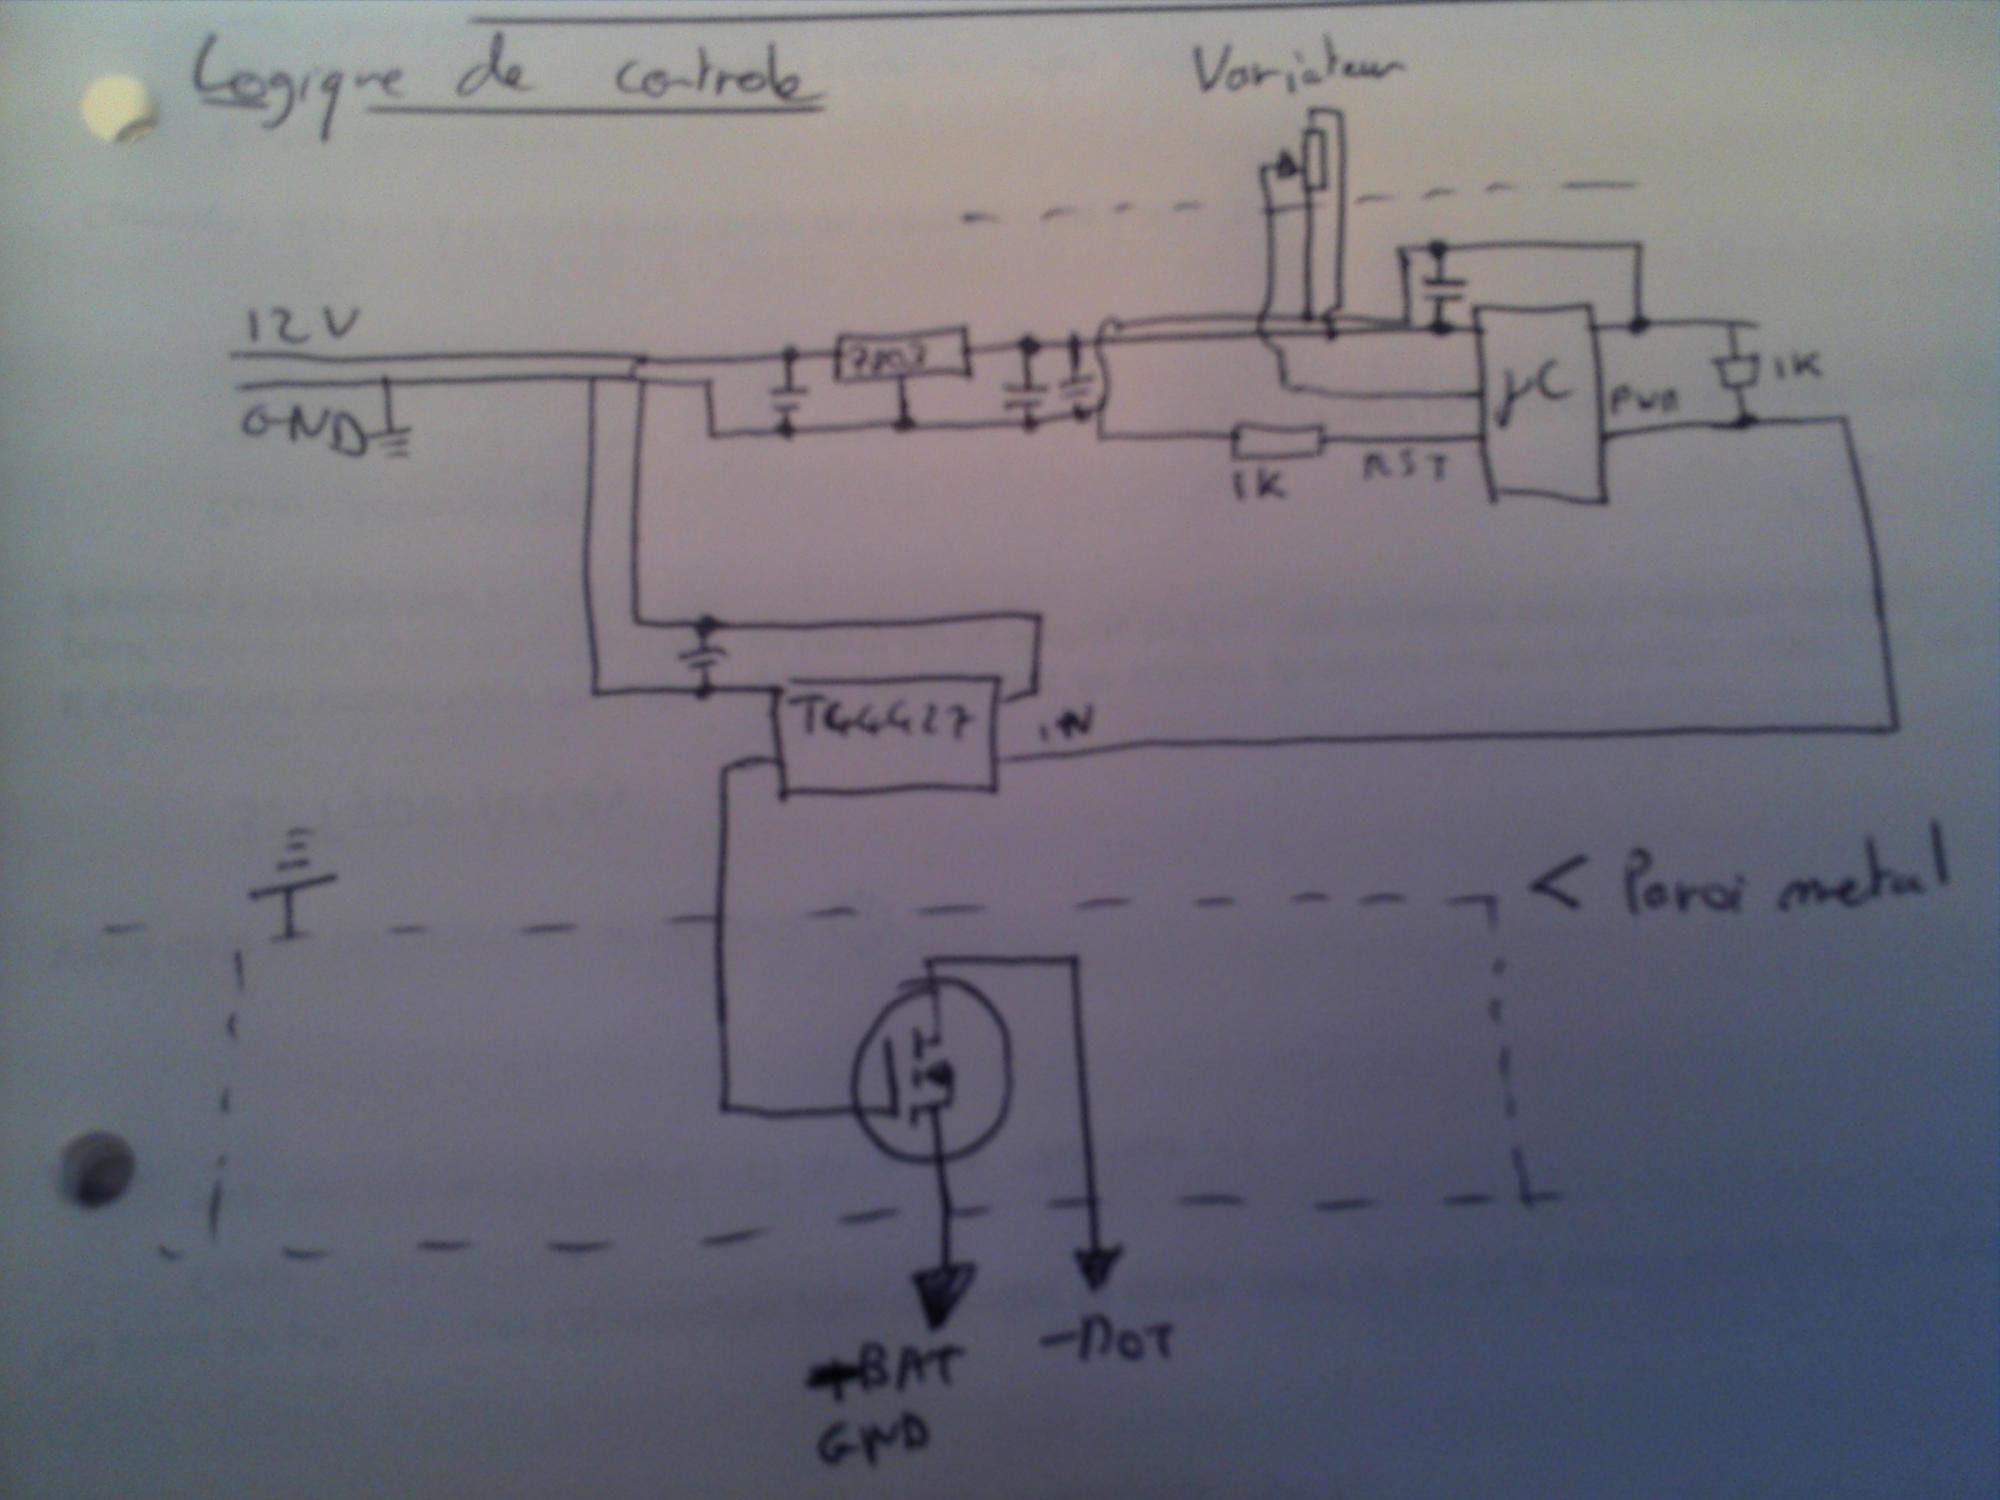 Logique de controle
Variateur
12V
GND
7805
1K
RST
µC
PWM
1K
TC4427
IN
< Paroi metal
BAT
GND
-MOT